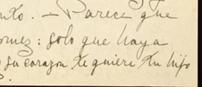 ento. — Parece que
omez: solo que haya
su corazon te quiere tu hijo